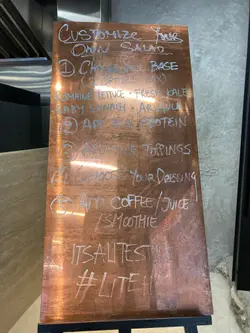 Customize Your
Own Salad
1) Choose Your Base
Romaine Lettuce • Fresh Kale
Baby Spinach • Arugula
2) Add Protein
3) Toppings
4) Choose Your Dressing
5) Add Coffee/Juice
/Smoothie
#Lite